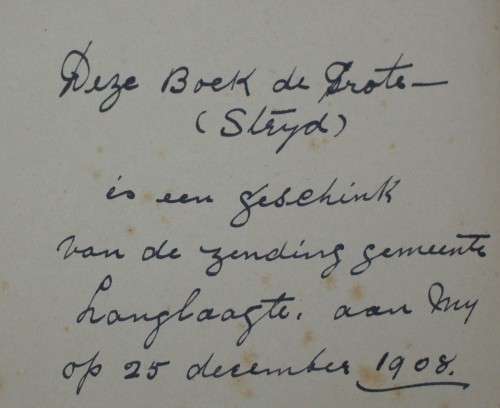 Deze Boek de Grote –
(Stryd)
is een geschink
van de zending gemeente
Langlaagte. aan My
op 25 december 1908.